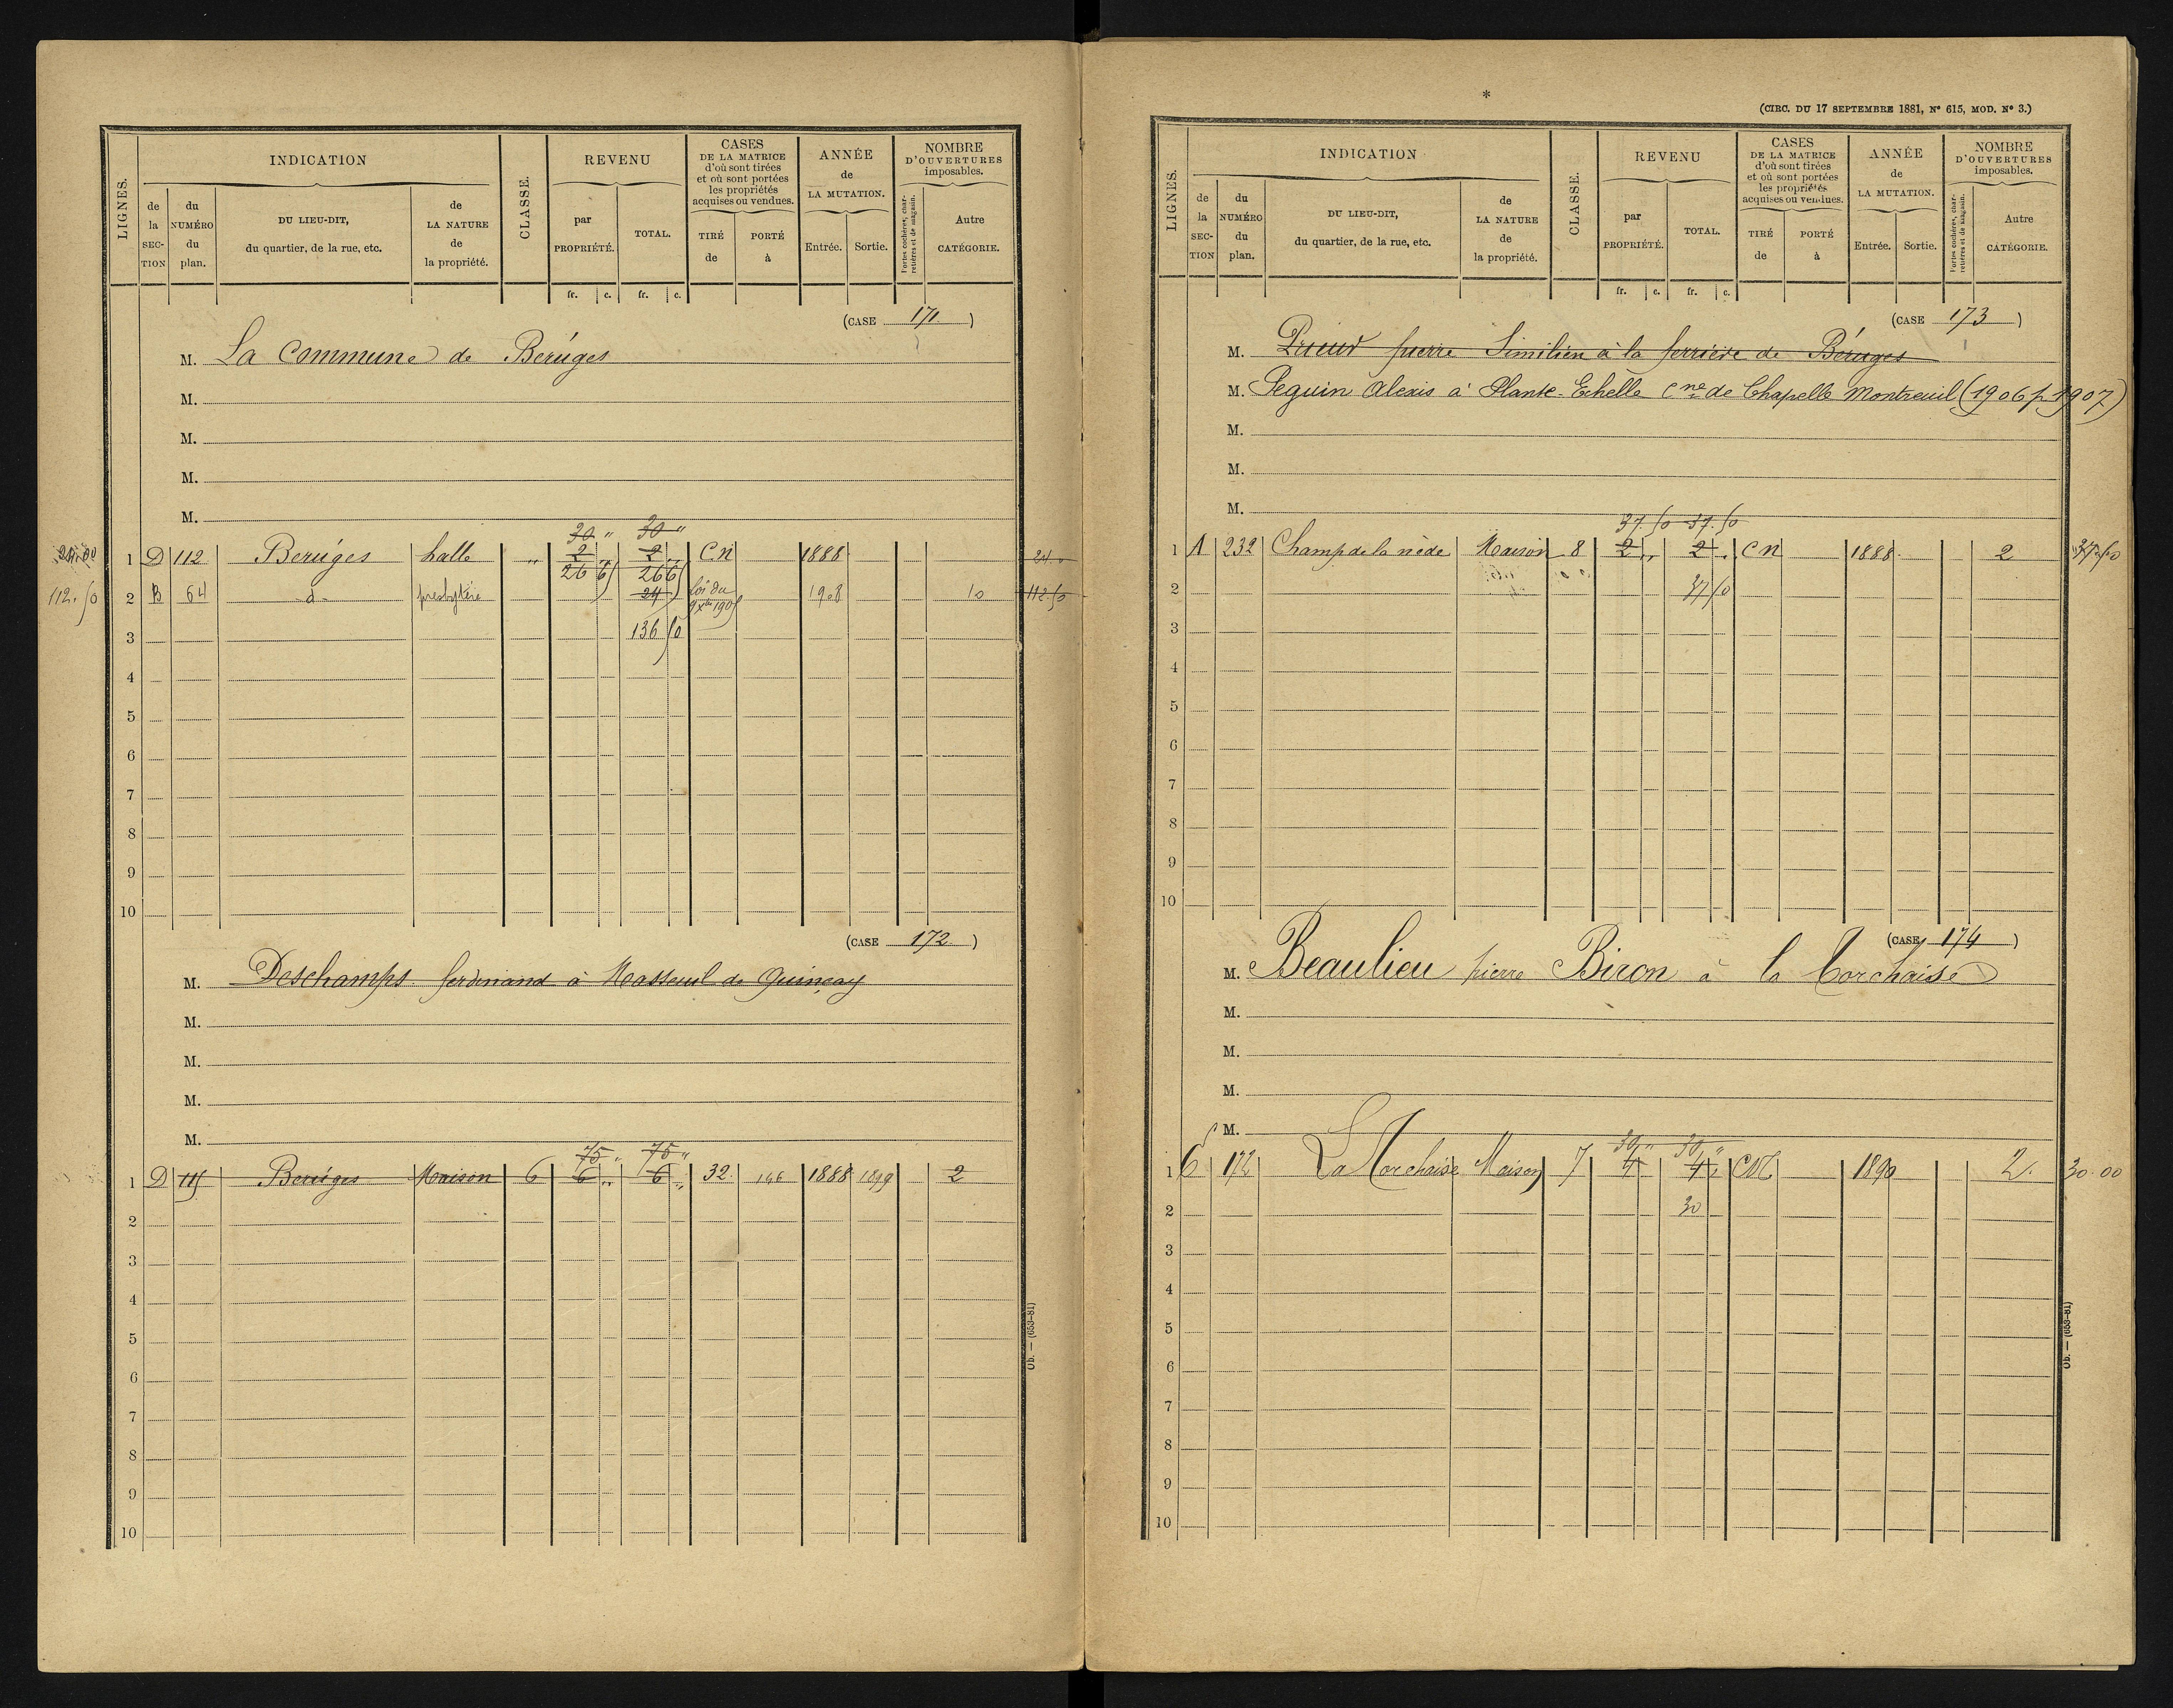 LIGNES.
INDICATION
CLASSE.
REVENU
CASES
DE LA MATRICE
d'où sont tirées
et où sont portées
les propriétés
acquises ou vendues.
ANNÉE
de
LA MUTATION.
NOMBRE
D'OUVERTURES
imposables.
de la SEC-TION
du NUMÉRO du plan.
DU LIEU-DIT,
du quartier, de la rue, etc.
de LA NATURE de la propriété.
par PROPRIÉTÉ.
TOTAL.
TIRÉ de
PORTÉ à
Entrée.
Sortie.
Portes cochères, char-retières et de magasin.
Autre CATÉGORIE.
fr. c. fr. c.
(CASE 171)
M. La Commune de Beruges
M.
M.
M.
M.
30 " 30 "
1 D 112 Beruges halle " 2 " 2 " CN 1888
26 65 2665
2 B 64 d° presbytère 24 loi du 1908 10 112.50
112.50
3 136 50
4
5
6
7
8
9
10
(CASE 172)
M. Deschamps ferdinand à Masseuil de Quinçay
M.
M.
M.
M.
75 " 75 "
1 D 115 Beruges Maison 6 6 " 6 " 32 196 1888 1899 2
2
3
4
5
6
7
8
9
10
Ob. — (653-81)
*
(CIRC. DU 17 SEPTEMBRE 1881, N° 615, MOD. N° 3.)
LIGNES.
INDICATION
CLASSE.
REVENU
CASES
DE LA MATRICE
d'où sont tirées
et où sont portées
les propriétés
acquises ou vendues.
ANNÉE
de
LA MUTATION.
NOMBRE
D'OUVERTURES
imposables.
de la SEC-TION
du NUMÉRO du plan.
DU LIEU-DIT,
du quartier, de la rue, etc.
de LA NATURE de la propriété.
par PROPRIÉTÉ.
TOTAL.
TIRÉ de
PORTÉ à
Entrée.
Sortie.
Portes cochères, char-retières et de magasin.
Autre CATÉGORIE.
fr. c. fr. c.
(CASE 173)
M. Prieur pierre Similien à la ferrière de Béruges
M. Peguin Alexis à Plante-Echelle Cne de Chapelle Montreuil (1906 p 1907)
M.
M.
M.
37.50 37.50
1 A 232 Champ de la nède Maison 8 2 " 2 " CN 1888 2 37.50
2 37 50
3
4
5
6
7
8
9
10
(CASE 174)
M. Beaulieu pierre Biron à la Torchaise
M.
M.
M.
M.
30 " 30 "
1 C 172 La Torchaise Maison 7 4 4 " CN 1890 2. 30.00
2 30
3
4
5
6
7
8
9
10
Ob. — (653-81)